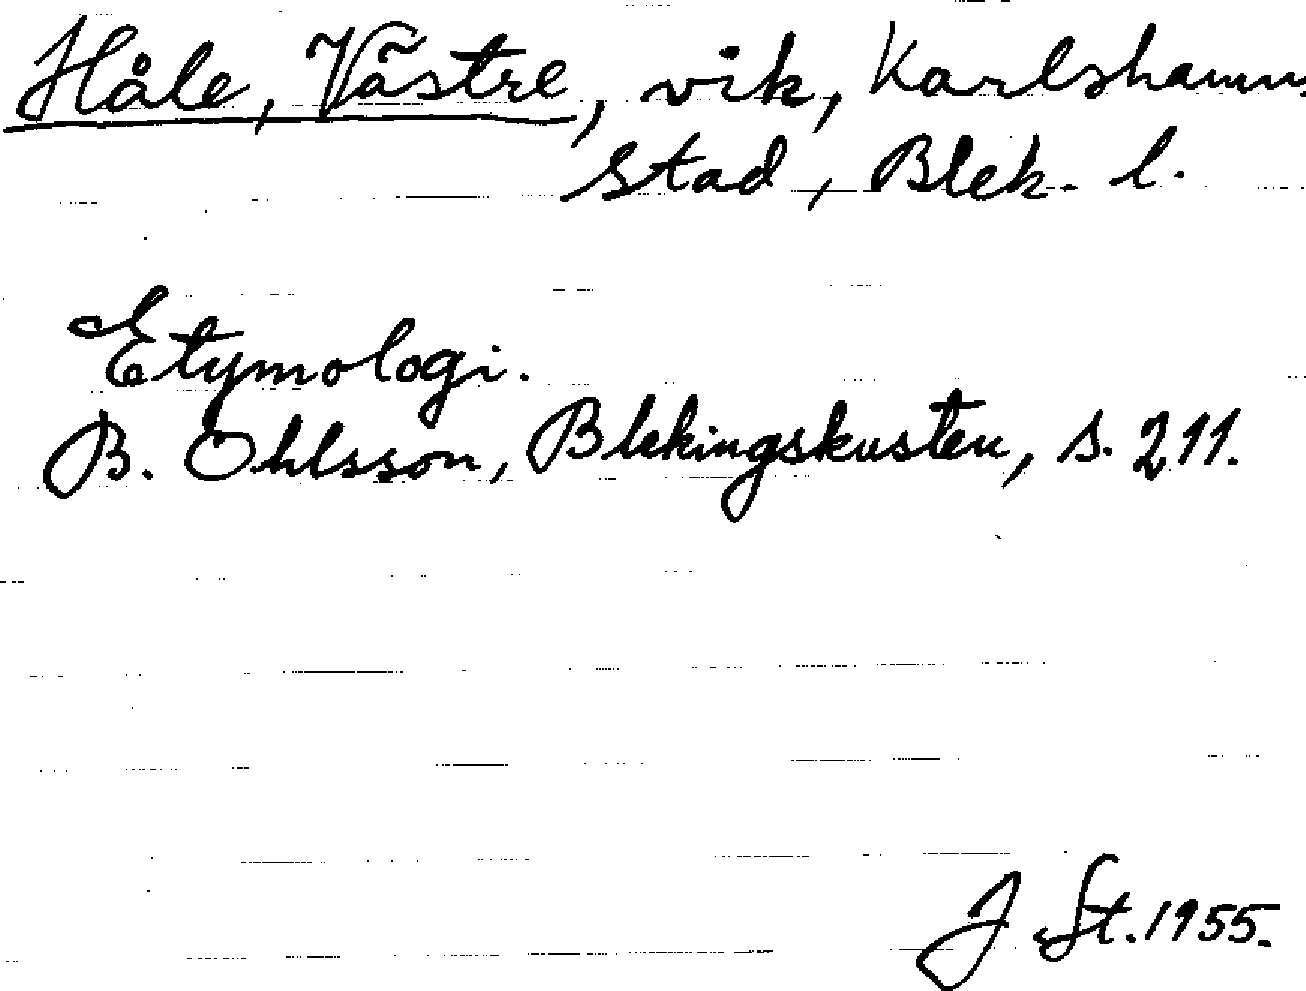 Håle, Västre, vik, Karlshamns
stad, Blek. l.
Etymologi.
B. Ohlsson, Blekingskusten, s. 211.
J. St. 1955.